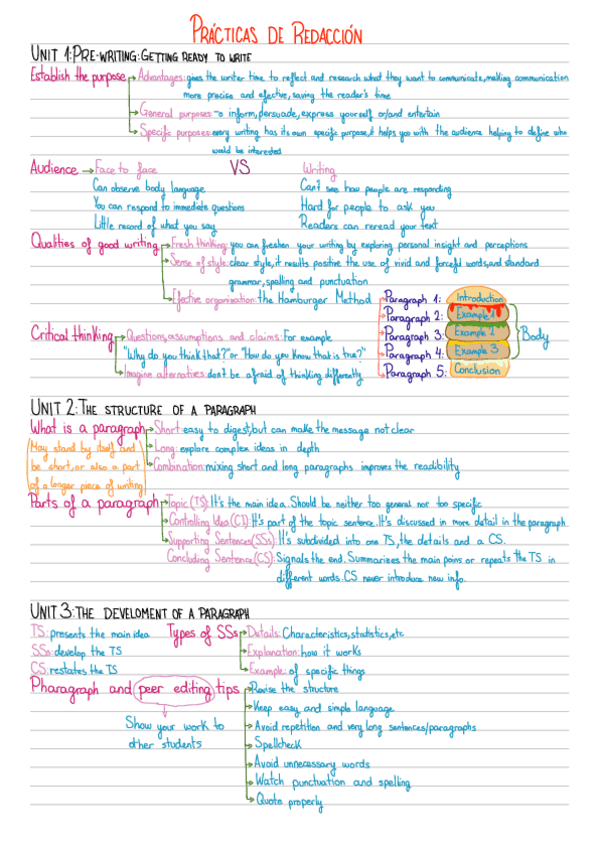 PRÁCTICAS DE REDACCIÓN
UNIT 1: PRE-WRITING: GETTING READY TO WRITE
Establish the purpose → Advantages: gives the writer time to reflect and research what they want to communicate, making communication
more precise and efective, saving the reader's time
→ General purposes → to inform, persuade, express yourself or/and entertain
→ Specific purposes: every writing has its own specific purpose, it helps you with the audience helping to define who
would be interested
Audience → Face to face VS Writing
Can observe body language Can't see how people are responding
You can respond to immediate questions Hard for people to ask you
Little record of what you say Readers can reread your text
Qualities of good writing → Fresh thinking: you can freshen your writing by exploring personal insight and perceptions
→ Sense of style: clear style, it results positive the use of vivid and forceful words, and standard
grammar, spelling and punctuation
→ Efective organisation: the Hamburger Method
Paragraph 1: Introduction
Paragraph 2: Example 1
Paragraph 3: Example 2
Paragraph 4: Example 3
Paragraph 5: Conclusion
Body
Critical thinking → Questions, assumptions and claims: For example
"Why do you think that?" or "How do you know that is true?"
→ Imagine alternatives: dont be afraid of thinking differently
UNIT 2: THE STRUCTURE OF A PARAGRAPH
What is a paragraph → Short: easy to digest, but can make the message not clear
→ Long: explore complex ideas in depth
→ Combination: mixing short and long paragraphs improves the readibility
May stand by itself and
be short, or also a part
of a longer piece of writing
Parts of a paragraph → Topic (TS): It's the main idea. Should be neither too general nor too specific
→ Controlling Idea (CI): It's part of the topic sentence. It's discussed in more detail in the paragraph
→ Supporting Sentences (SSs): It's subdivided into one TS, the details and a CS.
Concluding Sentence (CS): Signals the end. Summarizes the main poins or repeats the TS in
different words. CS never introduce new info.
UNIT 3: THE DEVELOMENT OF A PARAGRAPH
TS: presents the main idea
SSs: develop the TS
CS: restates the TS
Types of SSs → Details: Characteristics, statistics, etc
→ Explanation: how it works
→ Example: of specific things
Pharagraph and peer editing tips → Revise the structure
→ Keep easy and simple language
Show your work to
other students
→ Avoid repetition and very long sentences/paragraphs
→ Spellcheck
→ Avoid unnecessary words
→ Watch punctuation and spelling
→ Quote properly